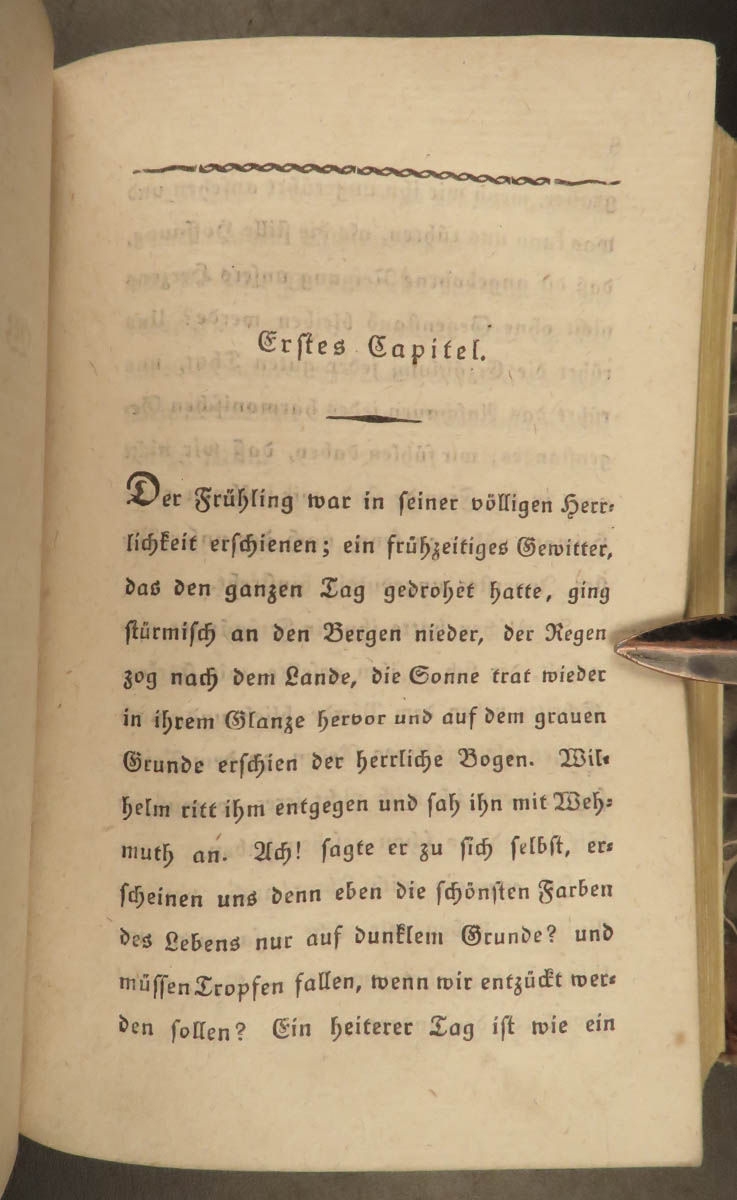 Erstes Capitel.
Der Frühling war in seiner völligen Herr-
lichkeit erschienen; ein frühzeitiges Gewitter,
das den ganzen Tag gedrohet hatte, ging
stürmisch an den Bergen nieder, der Regen
zog nach dem Lande, die Sonne trat wieder
in ihrem Glanze hervor und auf dem grauen
Grunde erschien der herrliche Bogen. Wil-
helm ritt ihm entgegen und sah ihn mit Weh-
muth an. Ach! sagte er zu sich selbst, er-
scheinen uns denn eben die schönsten Farben
des Lebens nur auf dunklem Grunde? und
müssen Tropfen fallen, wenn wir entzückt wer-
den sollen? Ein heiterer Tag ist wie ein